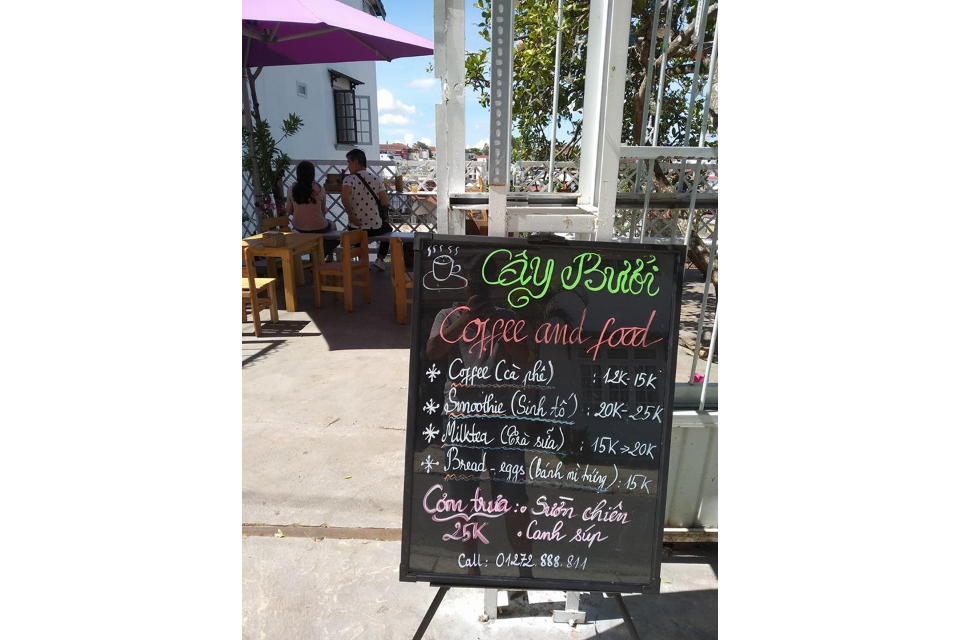 Cây Bưởi
Coffee and food
Coffee (cà phê) : 12K-15K
Smoothie (Sinh tố) : 20K-25K
Milktea (Trà sữa) : 15K→20K
Bread-eggs (bánh mì trứng) : 15K
Cơm trưa : • Sườn chiên
25K • Canh súp
Call : 01272.888.811